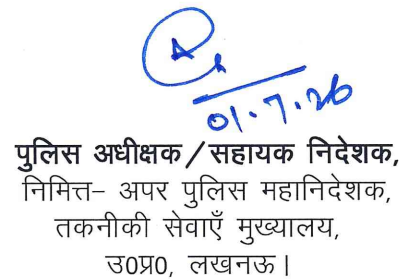 01.7.26
पुलिस अधीक्षक / सहायक निदेशक,
निमित्त– अपर पुलिस महानिदेशक,
तकनीकी सेवाएँ मुख्यालय,
उ0प्र0, लखनऊ।